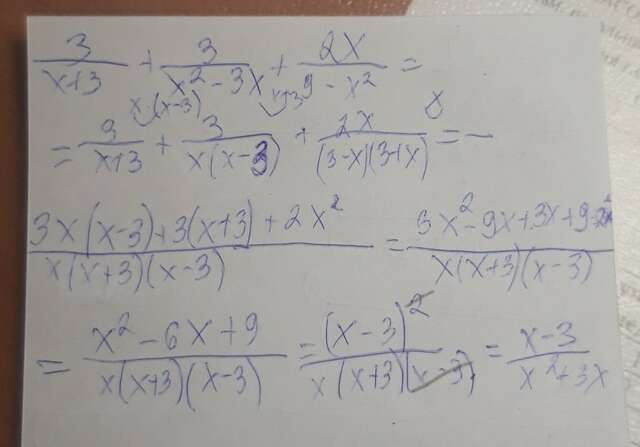 3/(x+3) + 3/(x² - 3x) + 2x/(9 - x²) =
x·(x-3)
= 3/(x+3) + 3/(x(x-3)) + 2x/((3-x)(3+x)) = -
(3x(x-3)+3(x+3)+2x²)/(x(x+3)(x-3)) = (3x²-9x+3x+9-2x²)/(x(x+3)(x-3))
= (x²-6x+9)/(x(x+3)(x-3)) = (x-3)²/(x(x+3)(x-3)) = (x-3)/(x²+3x)